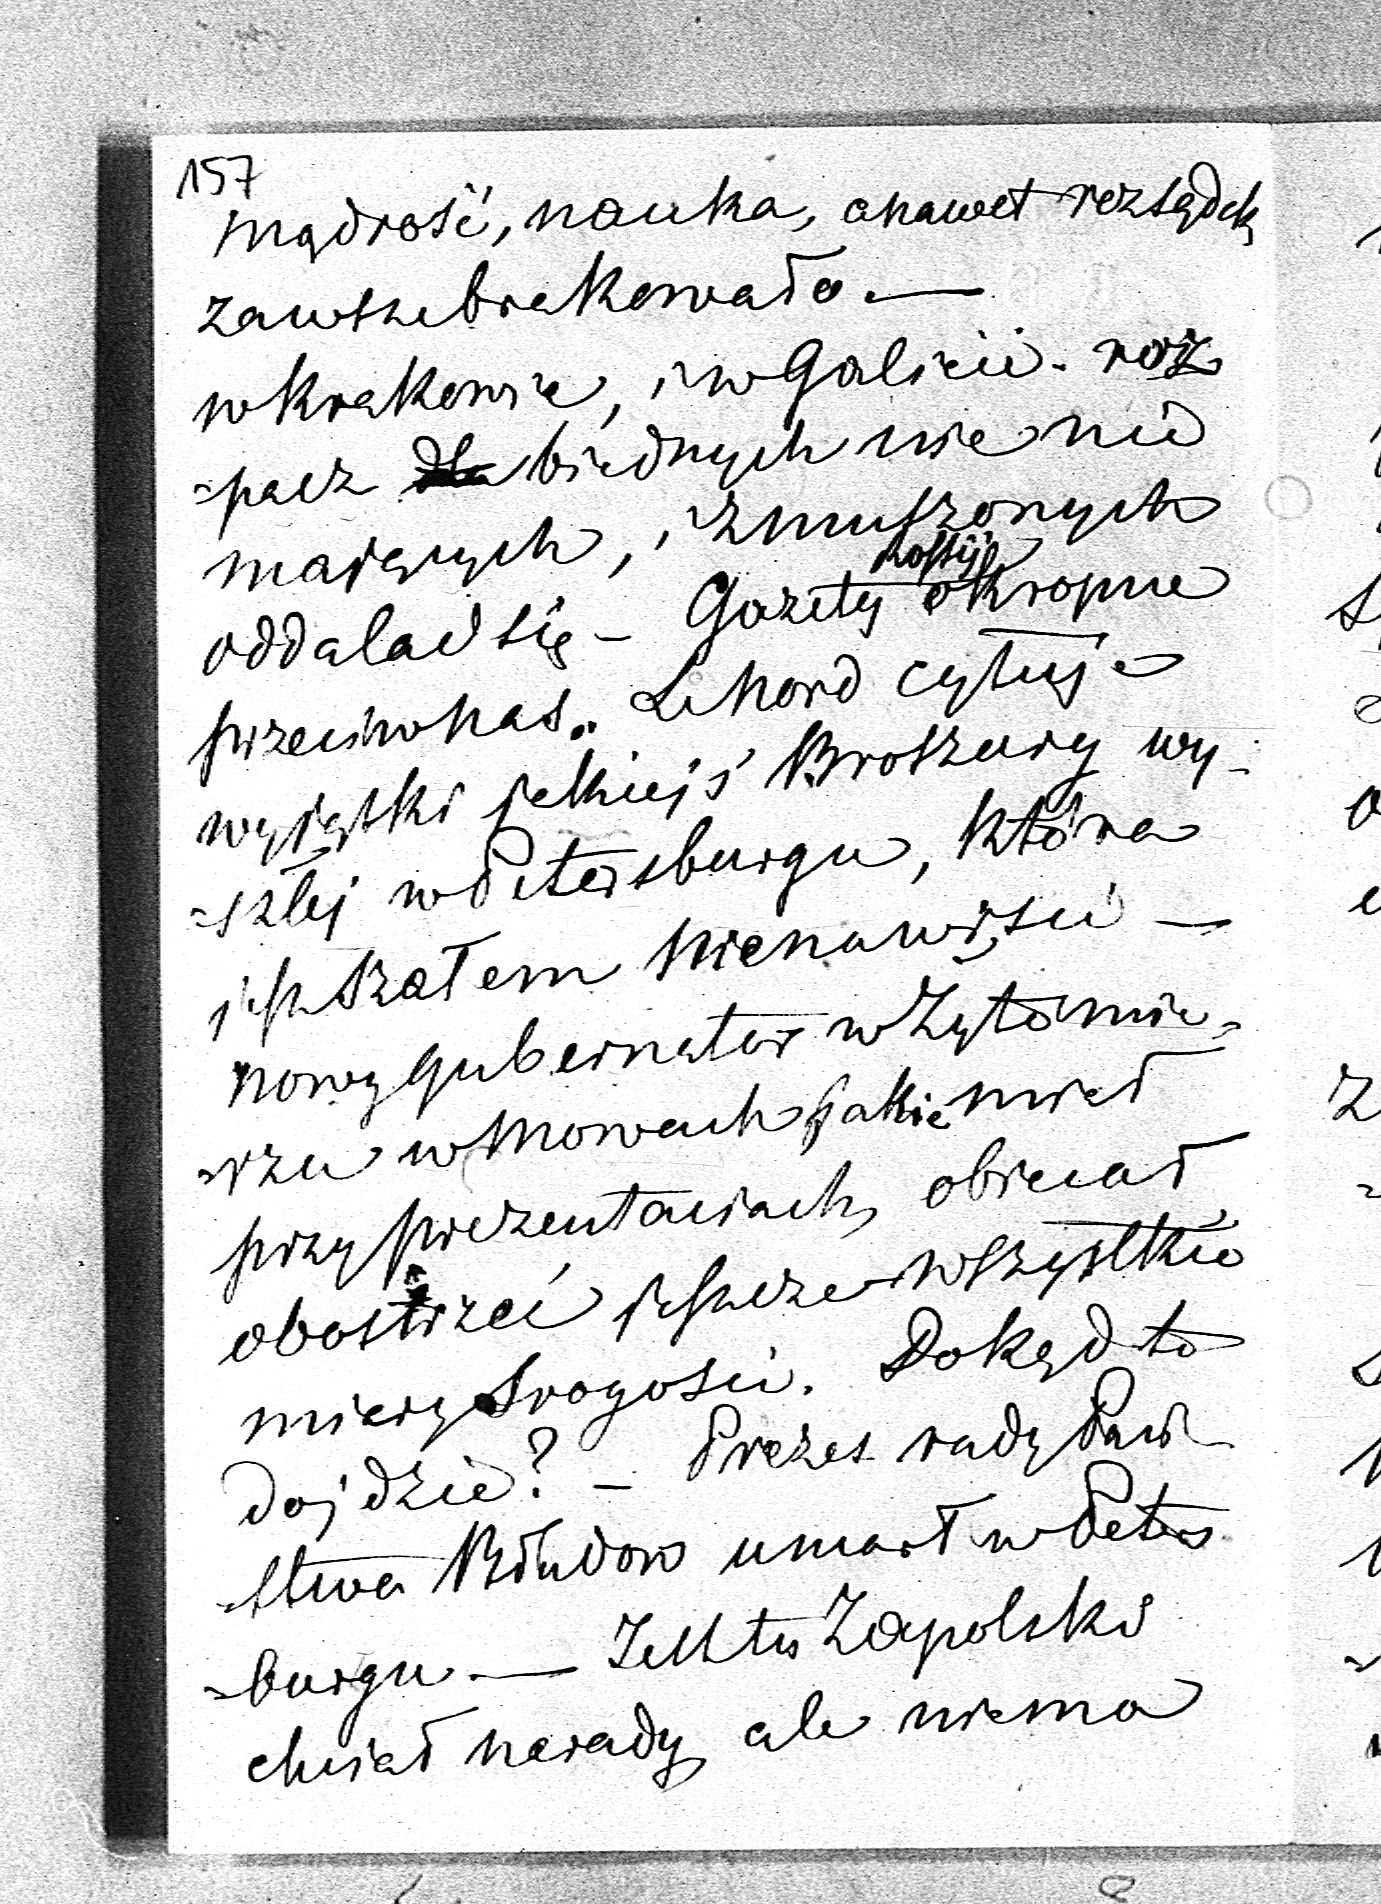 157
mądrość, nauka, a nawet rozsądek
zawsze brakowało. —
w Krakowie, i w Galicii. roz
-pacz dla biednych nie nie
maiących, i zmuszonych
oddalać się – Gazety okropne
przeciw nas. Le Nord cytuje
wyiątki jakiejś Broszury wy-
-szłej w Petersburgu, która
jest szałem nienawiści —
nowy gubernator w Żytomie-
-rzu w mowach jakie miał
przy prezentaciach, obiecał
obostrzeć jeszcze wszystkie
miary srogości. Dokąd to
dojdzie? – Prezes rady Pań
-stwa Błudow umarł w Peters
-burgu — Zapolski
chciał narady ale niema